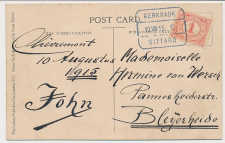 POST CARD.
KERKRADE
SITTARD
Chèvremont
10 Augustus
1915
John
Mademoiselle
Hermine van Wersch
Pannesheiderstr.
Bleyerheide